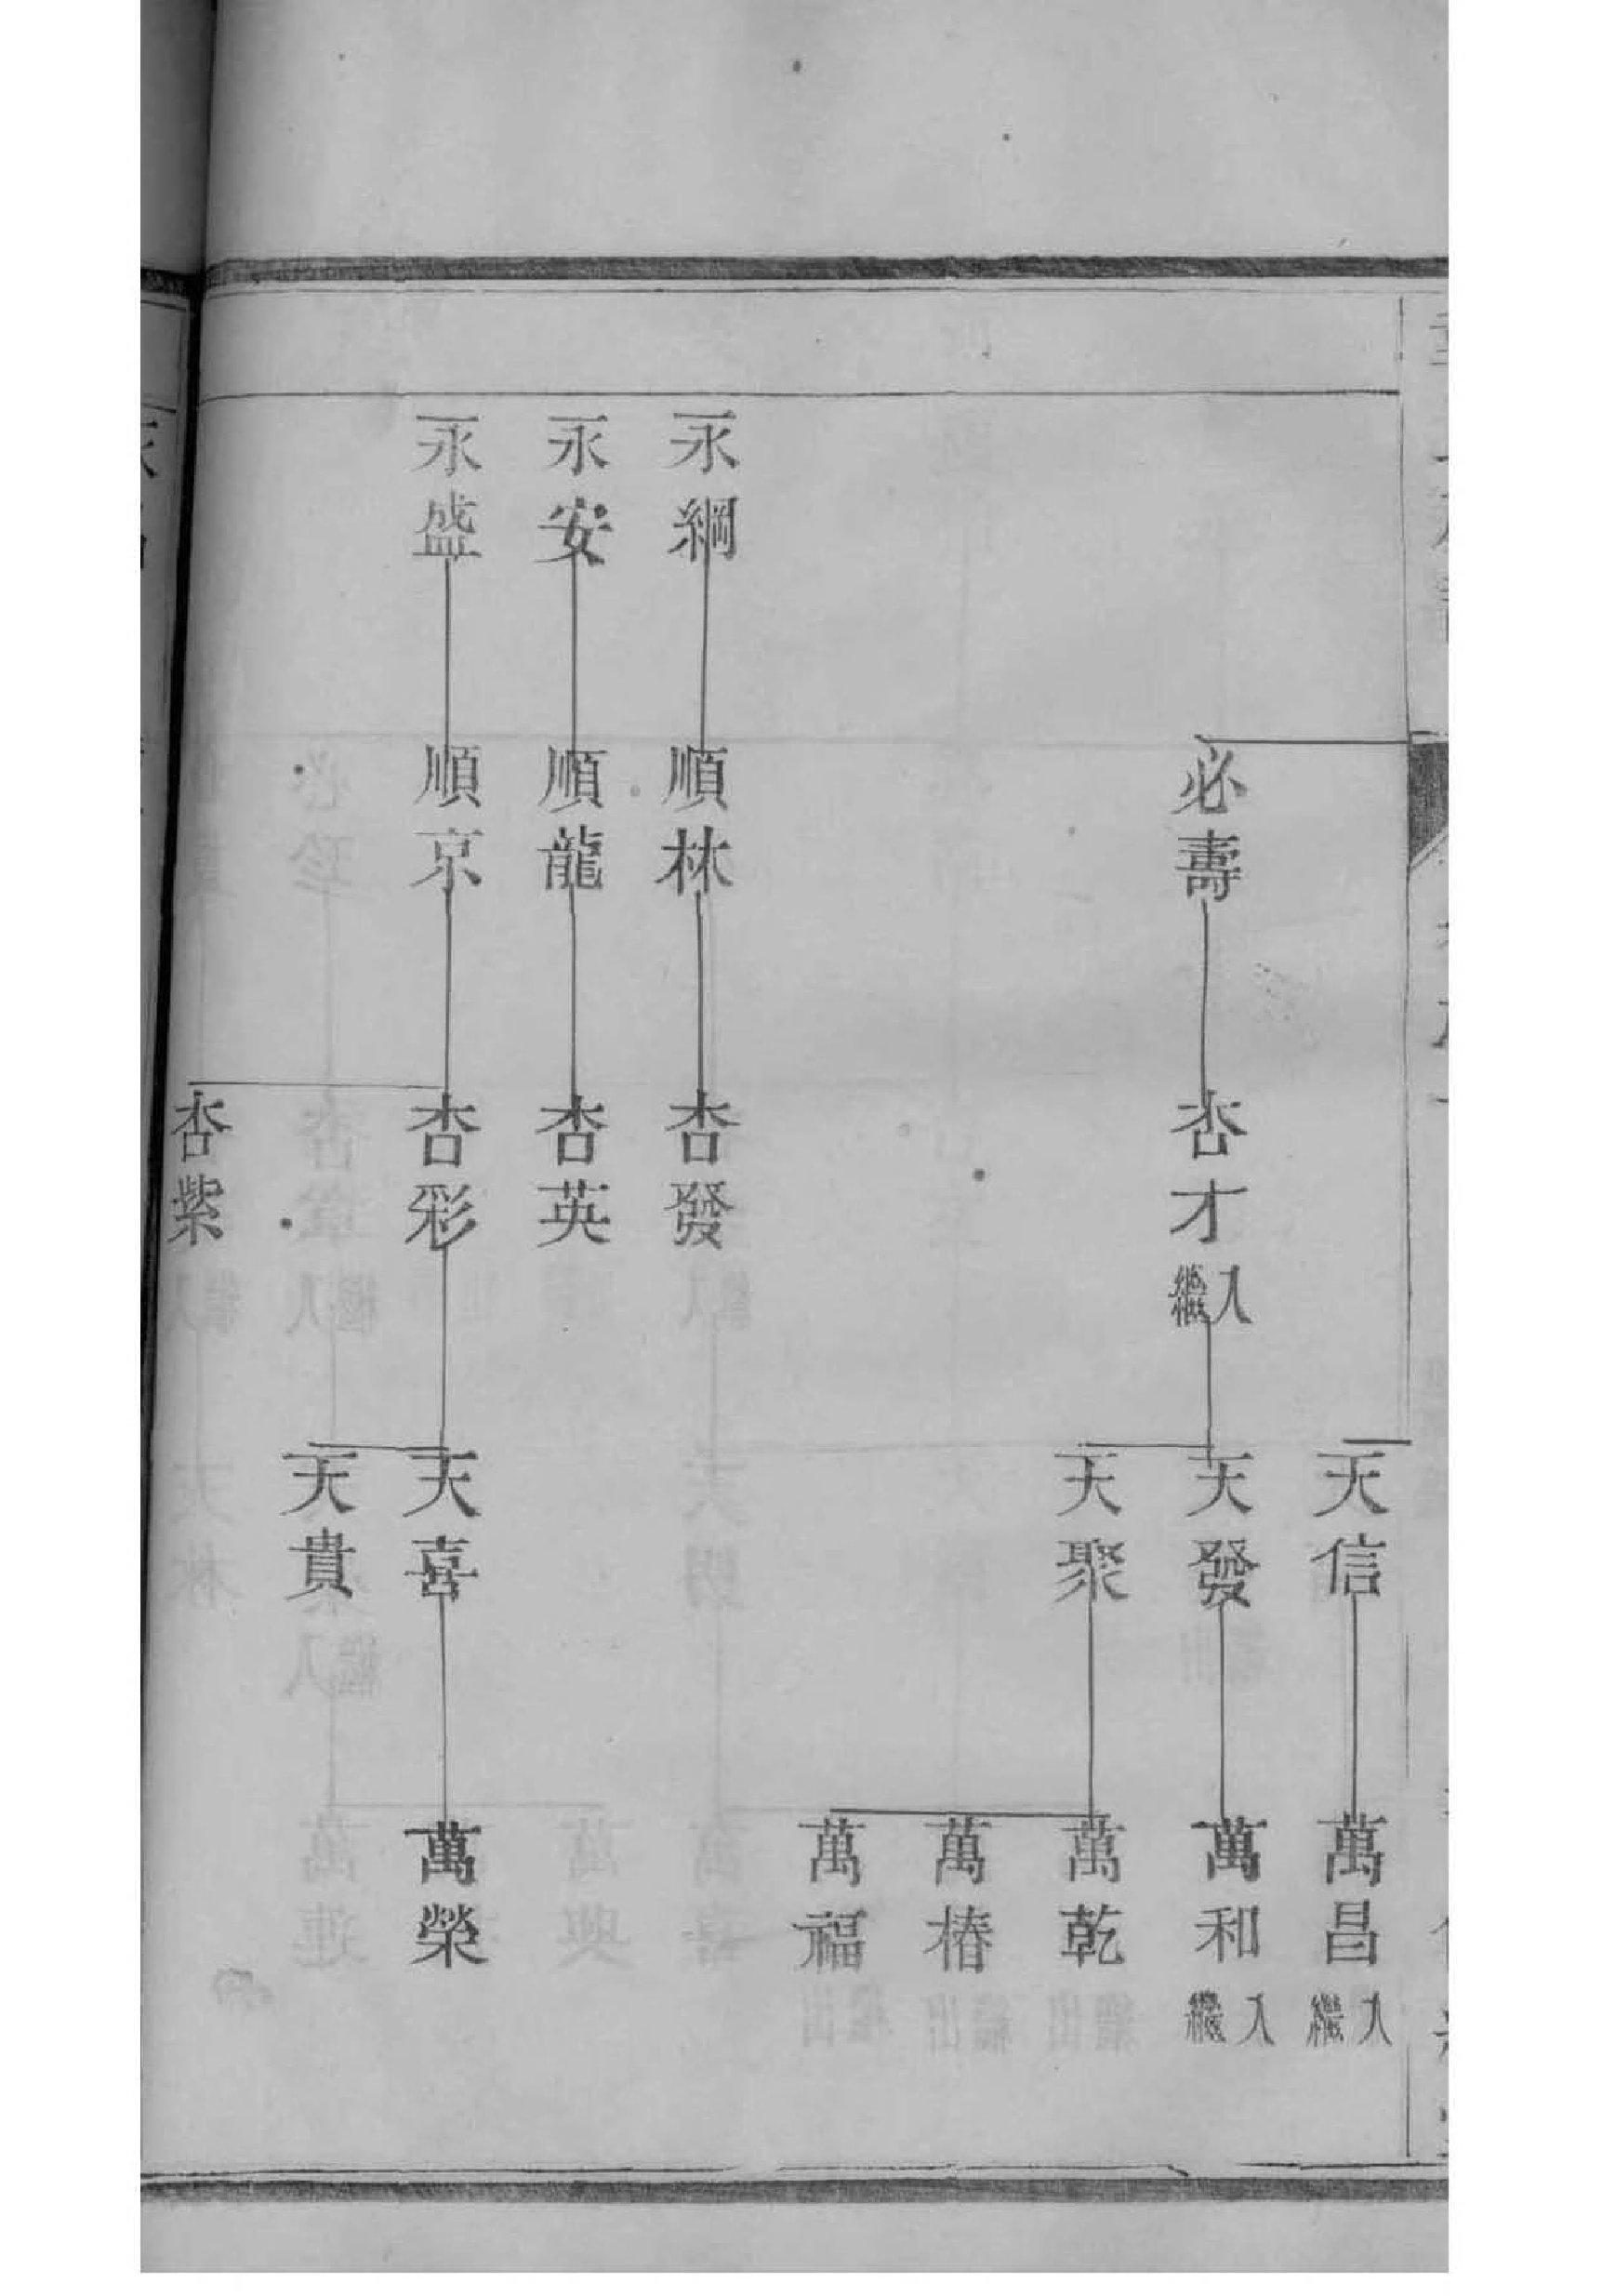 天信
萬昌
入繼
必壽
杏才
入繼
天發
萬和
入繼
天聚
萬乾
萬椿
萬福
永綱
順林
杏發
永安
順龍
杏英
永盛
順京
杏彩
天喜
萬榮
天貴
杏紫